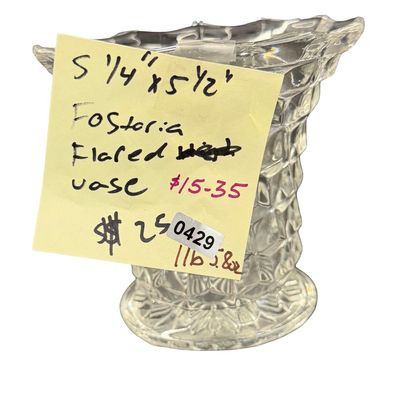 5 1/4" x 5 1/2"
Fostoria
Flared
vase $15-35
$ 25
0429
1lb 5.8oz